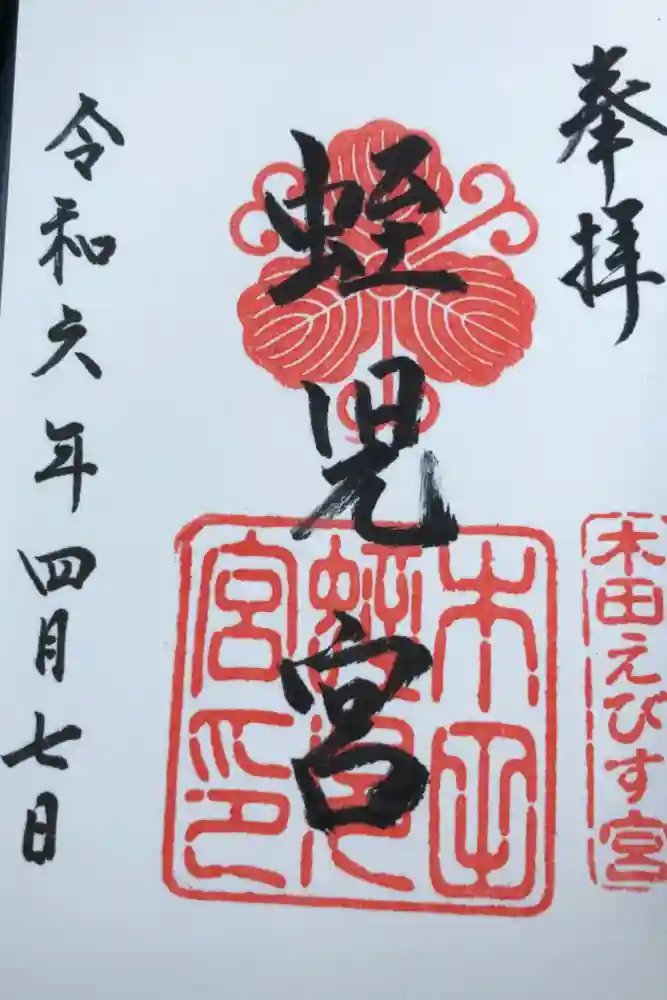 奉拝
木田えびす宮
蛭児宮
木田
蛭児
宮印
令和六年四月七日